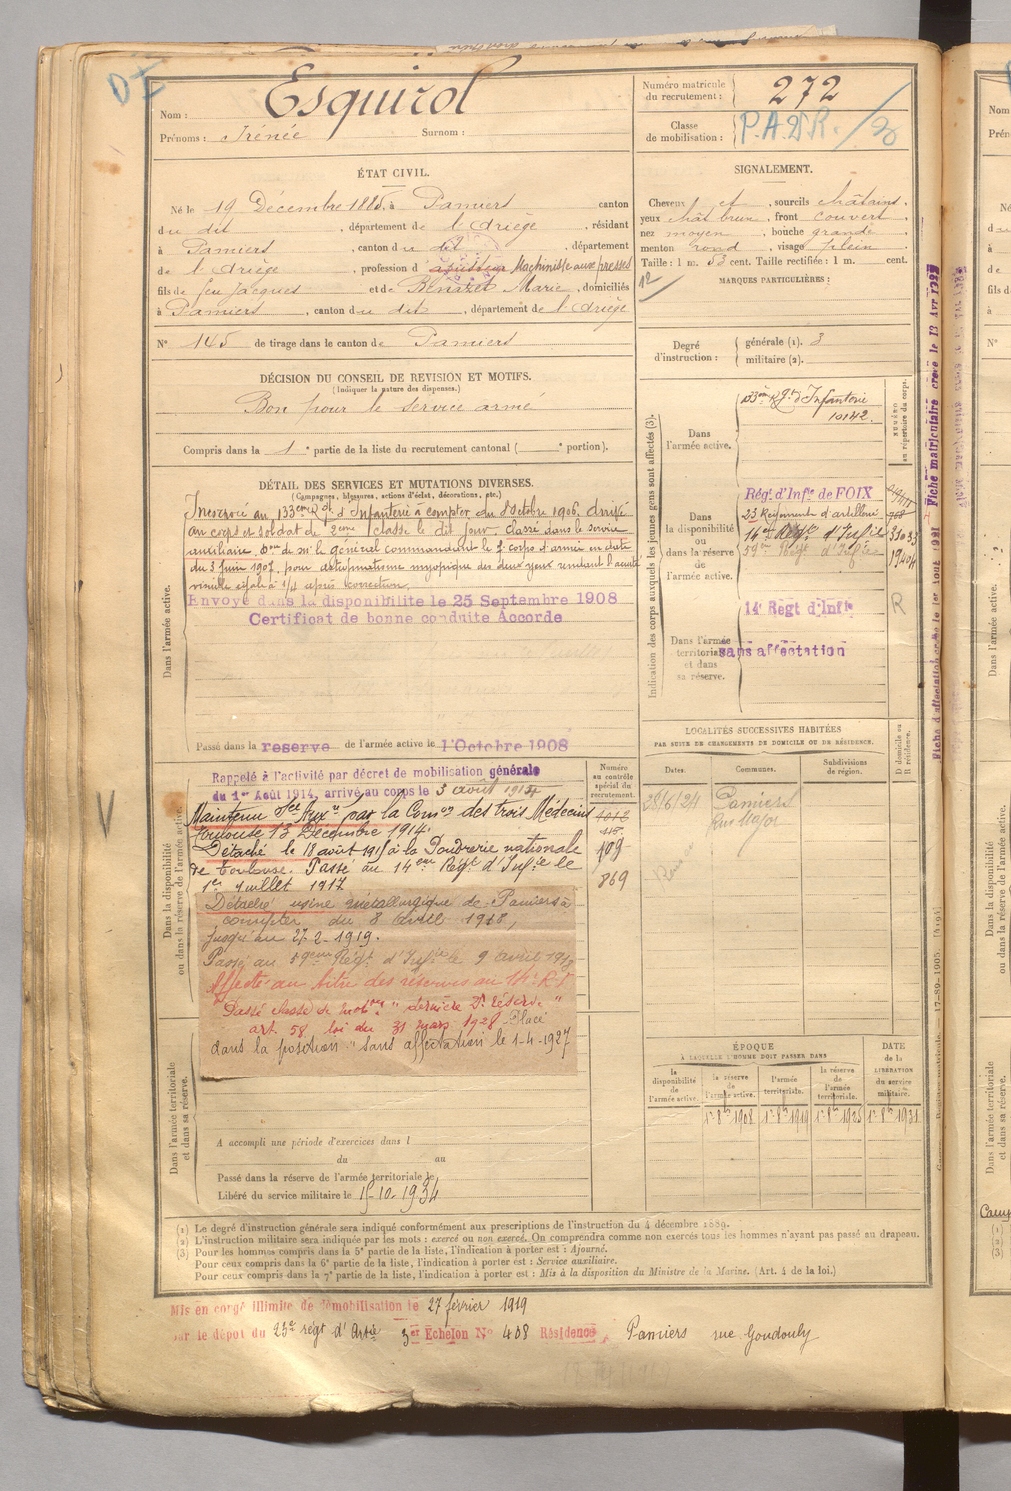 D I
Nom : Esquirol
Prénoms : Irénée Surnom :
Numéro matricule du recrutement : 272
Classe de mobilisation : P.A.D.R. /
ÉTAT CIVIL.
Né le 19 Décembre 1885 à Pamiers canton
du dit , département de l'Ariège , résidant
à Pamiers , canton du dit , département
de l'Ariège , profession d ajusteur Machiniste aux presses
fils de feu Jacques et de Benazet Marie , domiciliés
à Pamiers , canton du dit , département de l'Ariège
N° 145 de tirage dans le canton de Pamiers
SIGNALEMENT.
Cheveux et , sourcils châtains,
yeux chât brun , front couvert ,
nez moyen , bouche grande ,
menton rond , visage plein
Taille : 1 m. 53 cent. Taille rectifiée : 1 m. cent.
12
MARQUES PARTICULIÈRES :
Degré d'instruction : générale (1). 3
militaire (2).
DÉCISION DU CONSEIL DE REVISION ET MOTIFS.
(Indiquer la nature des dispenses.)
Bon pour le service armé
Compris dans la 1e partie de la liste du recrutement cantonal ( e portion).
DÉTAIL DES SERVICES ET MUTATIONS DIVERSES.
(Campagnes, blessures, actions d'éclat, décorations, etc.)
Dans l'armée active.
Incorporé au 133eme Rgt d'Infanterie à compter du 8 Octobre 1906. arrivé
au corps et soldat de 2eme classe le dit jour, classé dans le service
auxiliaire. Don de Mr le général commandant le 7e corps d'armée en date
du 3 juin 1907, pour astigmatisme myopique des deux yeux rendant l'acuité
visuelle égale à 1/4 après correction.
Envoyé dans la disponibilite le 25 Septembre 1908
Certificat de bonne conduite Accorde
Passé dans la reserve de l'armée active le 1 Octobre 1908
Indication des corps auxquels les jeunes gens sont affectés (3).
NUMÉRO au répertoire du corps.
Dans l'armée active.
133eme Rgt d'Infanterie
10142.
Dans la disponibilité ou dans la réserve de l'armée active.
Régt d'Infie de FOIX
23 Régiment d'artillerie
14e Régt d'Infie 3103
59eme Régt d'Infie 19404
14e Regt d'Infie R
Dans l'armée territoriale et dans sa réserve.
sans affectation
LOCALITÉS SUCCESSIVES HABITÉES
PAR SUITE DE CHANGEMENTS DE DOMICILE OU DE RÉSIDENCE.
Dates. Communes. Subdivisions de région. D domicile ou R résidence.
28/6/24 Pamiers
Rue Major
Dans la disponibilité ou dans la réserve de l'armée active.
Numéro au contrôle spécial du recrutement.
Rappelé à l'activité par décret de mobilisation générale
du 1er Août 1914, arrivé au corps le 3 août 1914
Maintenu sce Auxre par la Comon des trois Médecins
Toulouse 13 Décembre 1914.
Détaché le 18 août 1915 à la Poudrerie nationale 109
de Toulouse. Passé au 14eme Régt d'Infie le
1er Juillet 1917 869
Détaché usine métallurgique de Pamiers à
compter du 8 avril 1918,
jusqu'au 27-2-1919.
Passé au 59eme Régt d'Infie le 9 avril 1918
Affecté au titre des réserves au 14e R.I
"Passé classe de mobon " dernière De Réserve "
art. 58 loi du 31 mars 1928 Placé
dans la position "sans affectation le 1-4-1927
Dans l'armée territoriale et dans sa réserve.
A accompli une période d'exercices dans l
du au
Passé dans la réserve de l'armée territoriale le
Libéré du service militaire le 15-10-1934
ÉPOQUE
À LAQUELLE L'HOMME DOIT PASSER DANS
DATE de la LIBÉRATION du service militaire.
la disponibilité de l'armée active. la réserve de l'armée active. l'armée territoriale. la réserve de l'armée territoriale.
1er 8bre 1908 1er 8bre 1919 1er 8bre 1925 1er 8bre 1931
(1) Le degré d'instruction générale sera indiqué conformément aux prescriptions de l'instruction du 4 décembre 1889.
(2) L'instruction militaire sera indiquée par les mots : exercé ou non exercé. On comprendra comme non exercés tous les hommes n'ayant pas passé au drapeau.
(3) Pour les hommes compris dans la 5e partie de la liste, l'indication à porter est : Ajourné.
Pour ceux compris dans la 6e partie de la liste, l'indication à porter est : Service auxiliaire.
Pour ceux compris dans la 7e partie de la liste, l'indication à porter est : Mis à la disposition du Ministre de la Marine. (Art. 4 de la loi.)
Mis en congé illimité de démobilisation le 27 février 1919
par le dépot du 23e régt d'Artie 3er Echelon N° 408 Résidence Pamiers rue Goudouly